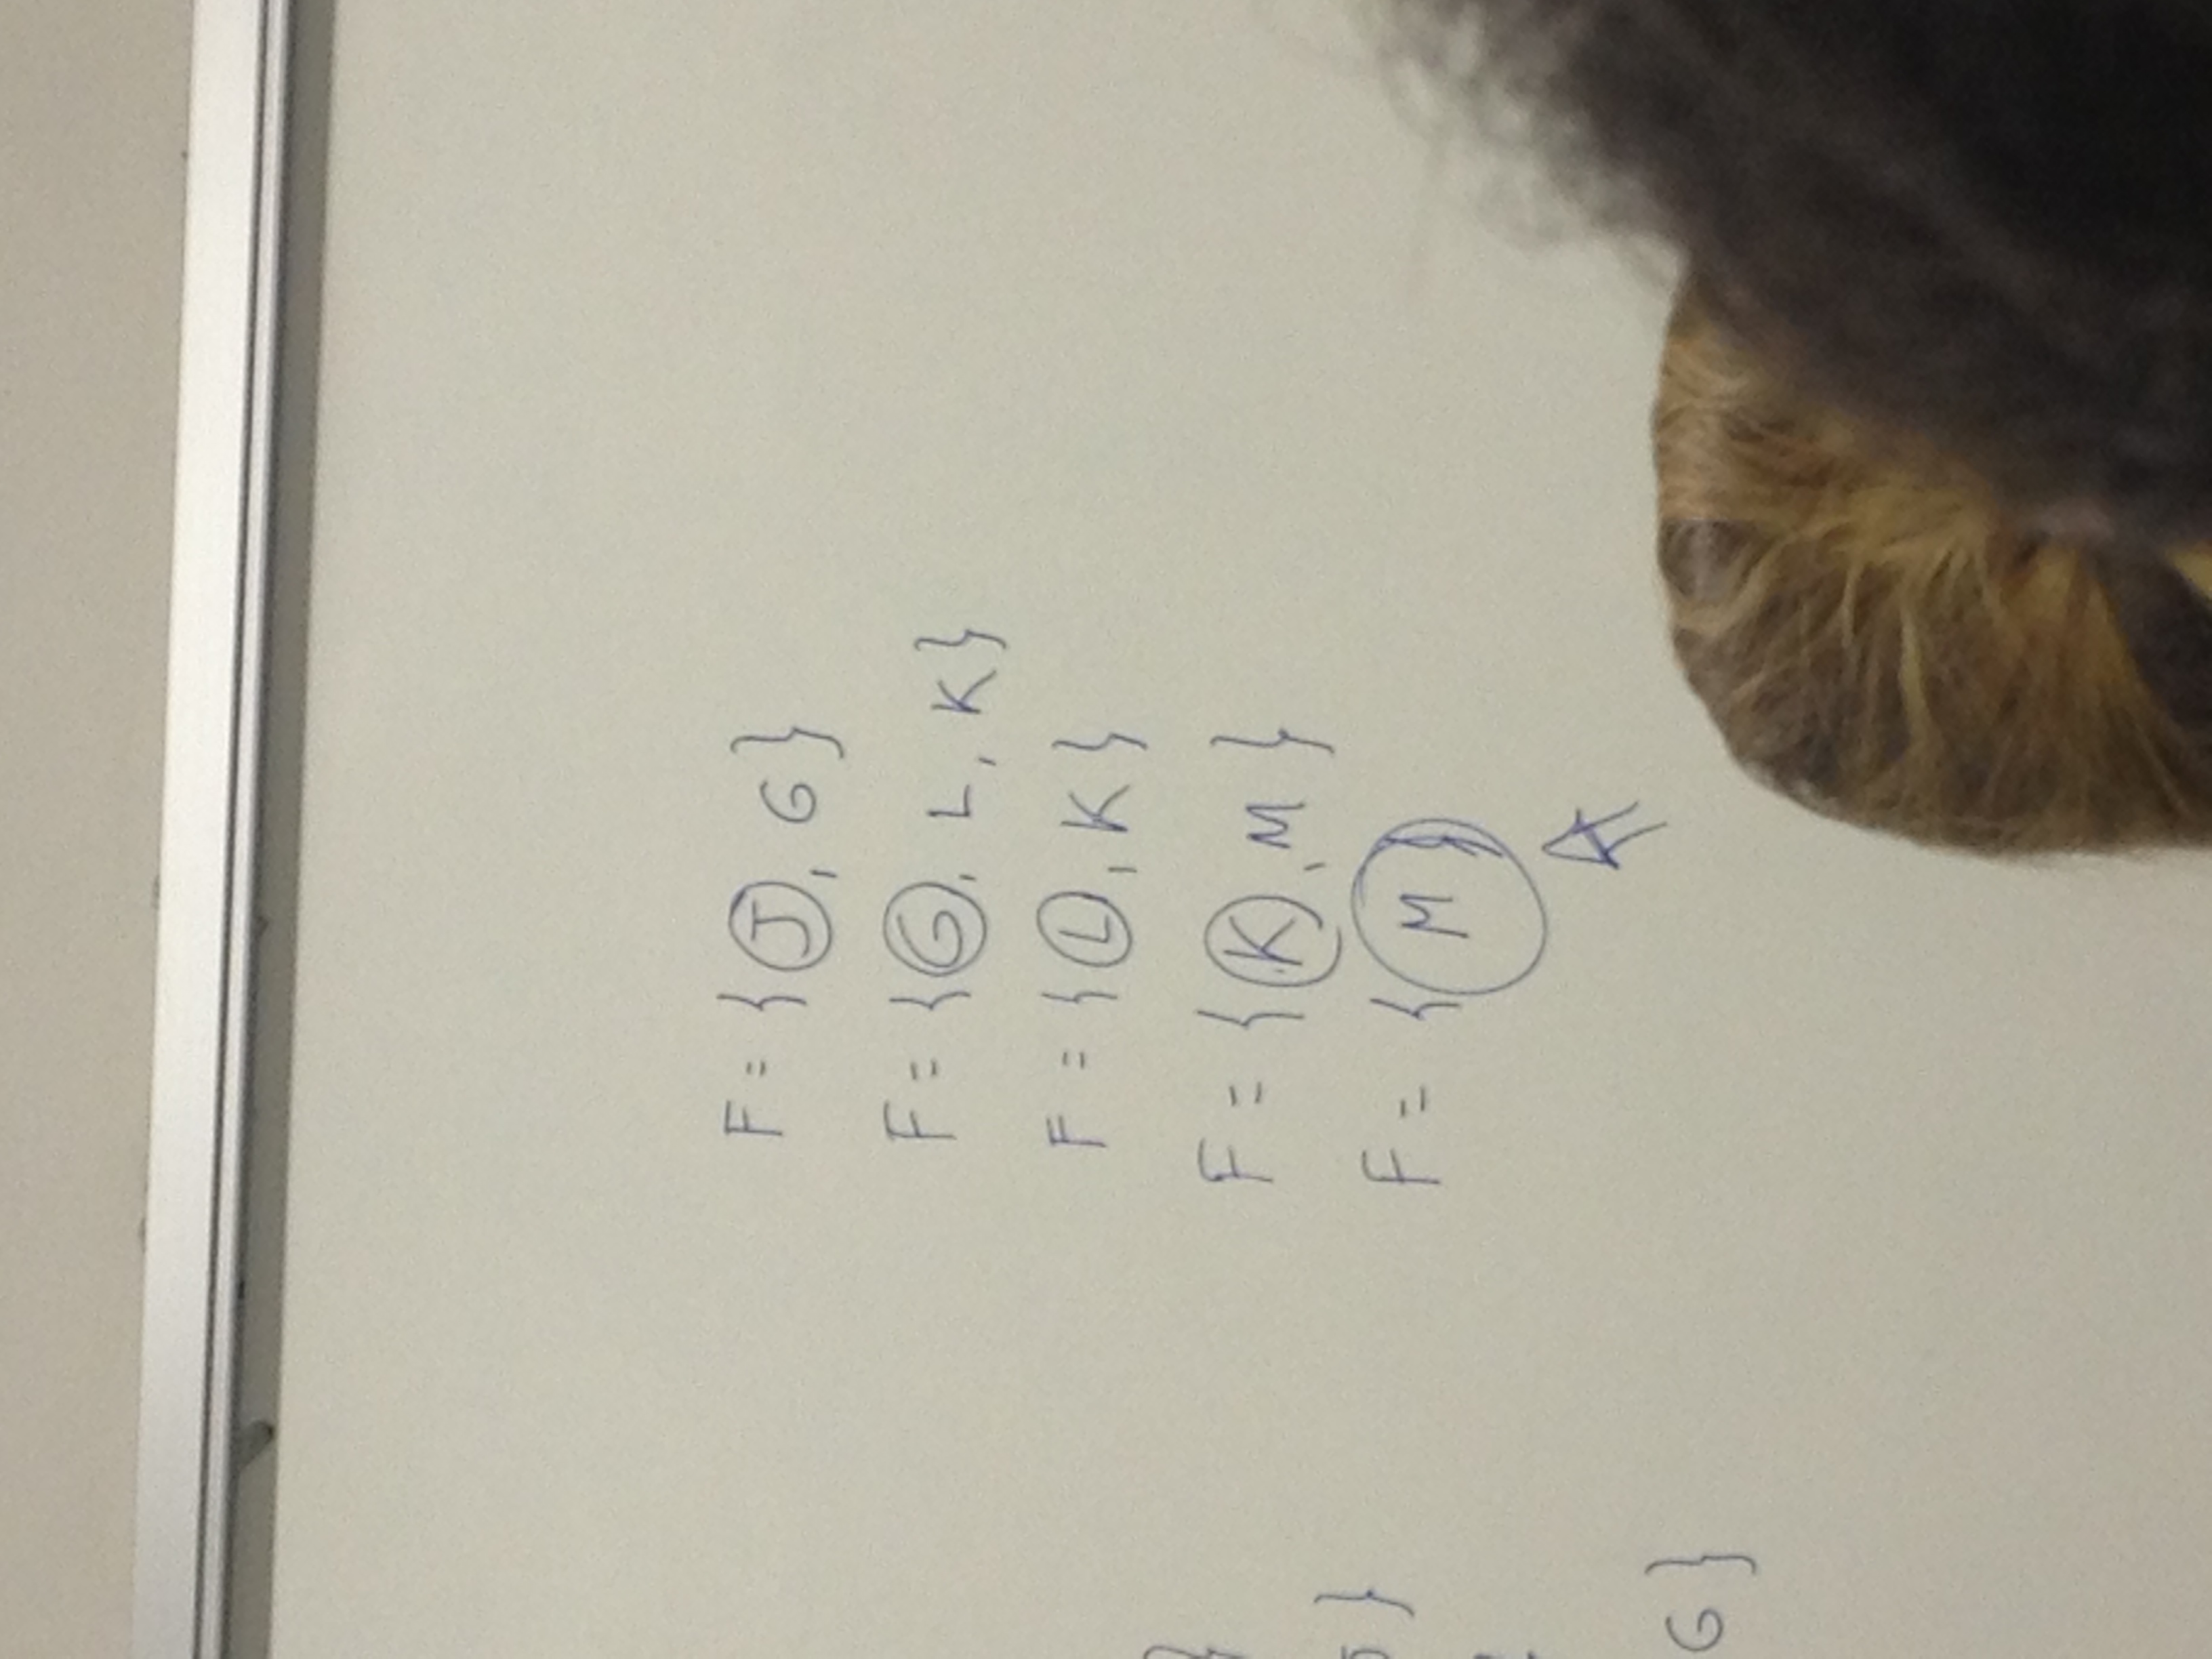 F = { J, G }
F = { G, L, K }
F = { L, K }
F = { K, M }
F = { M }
G }